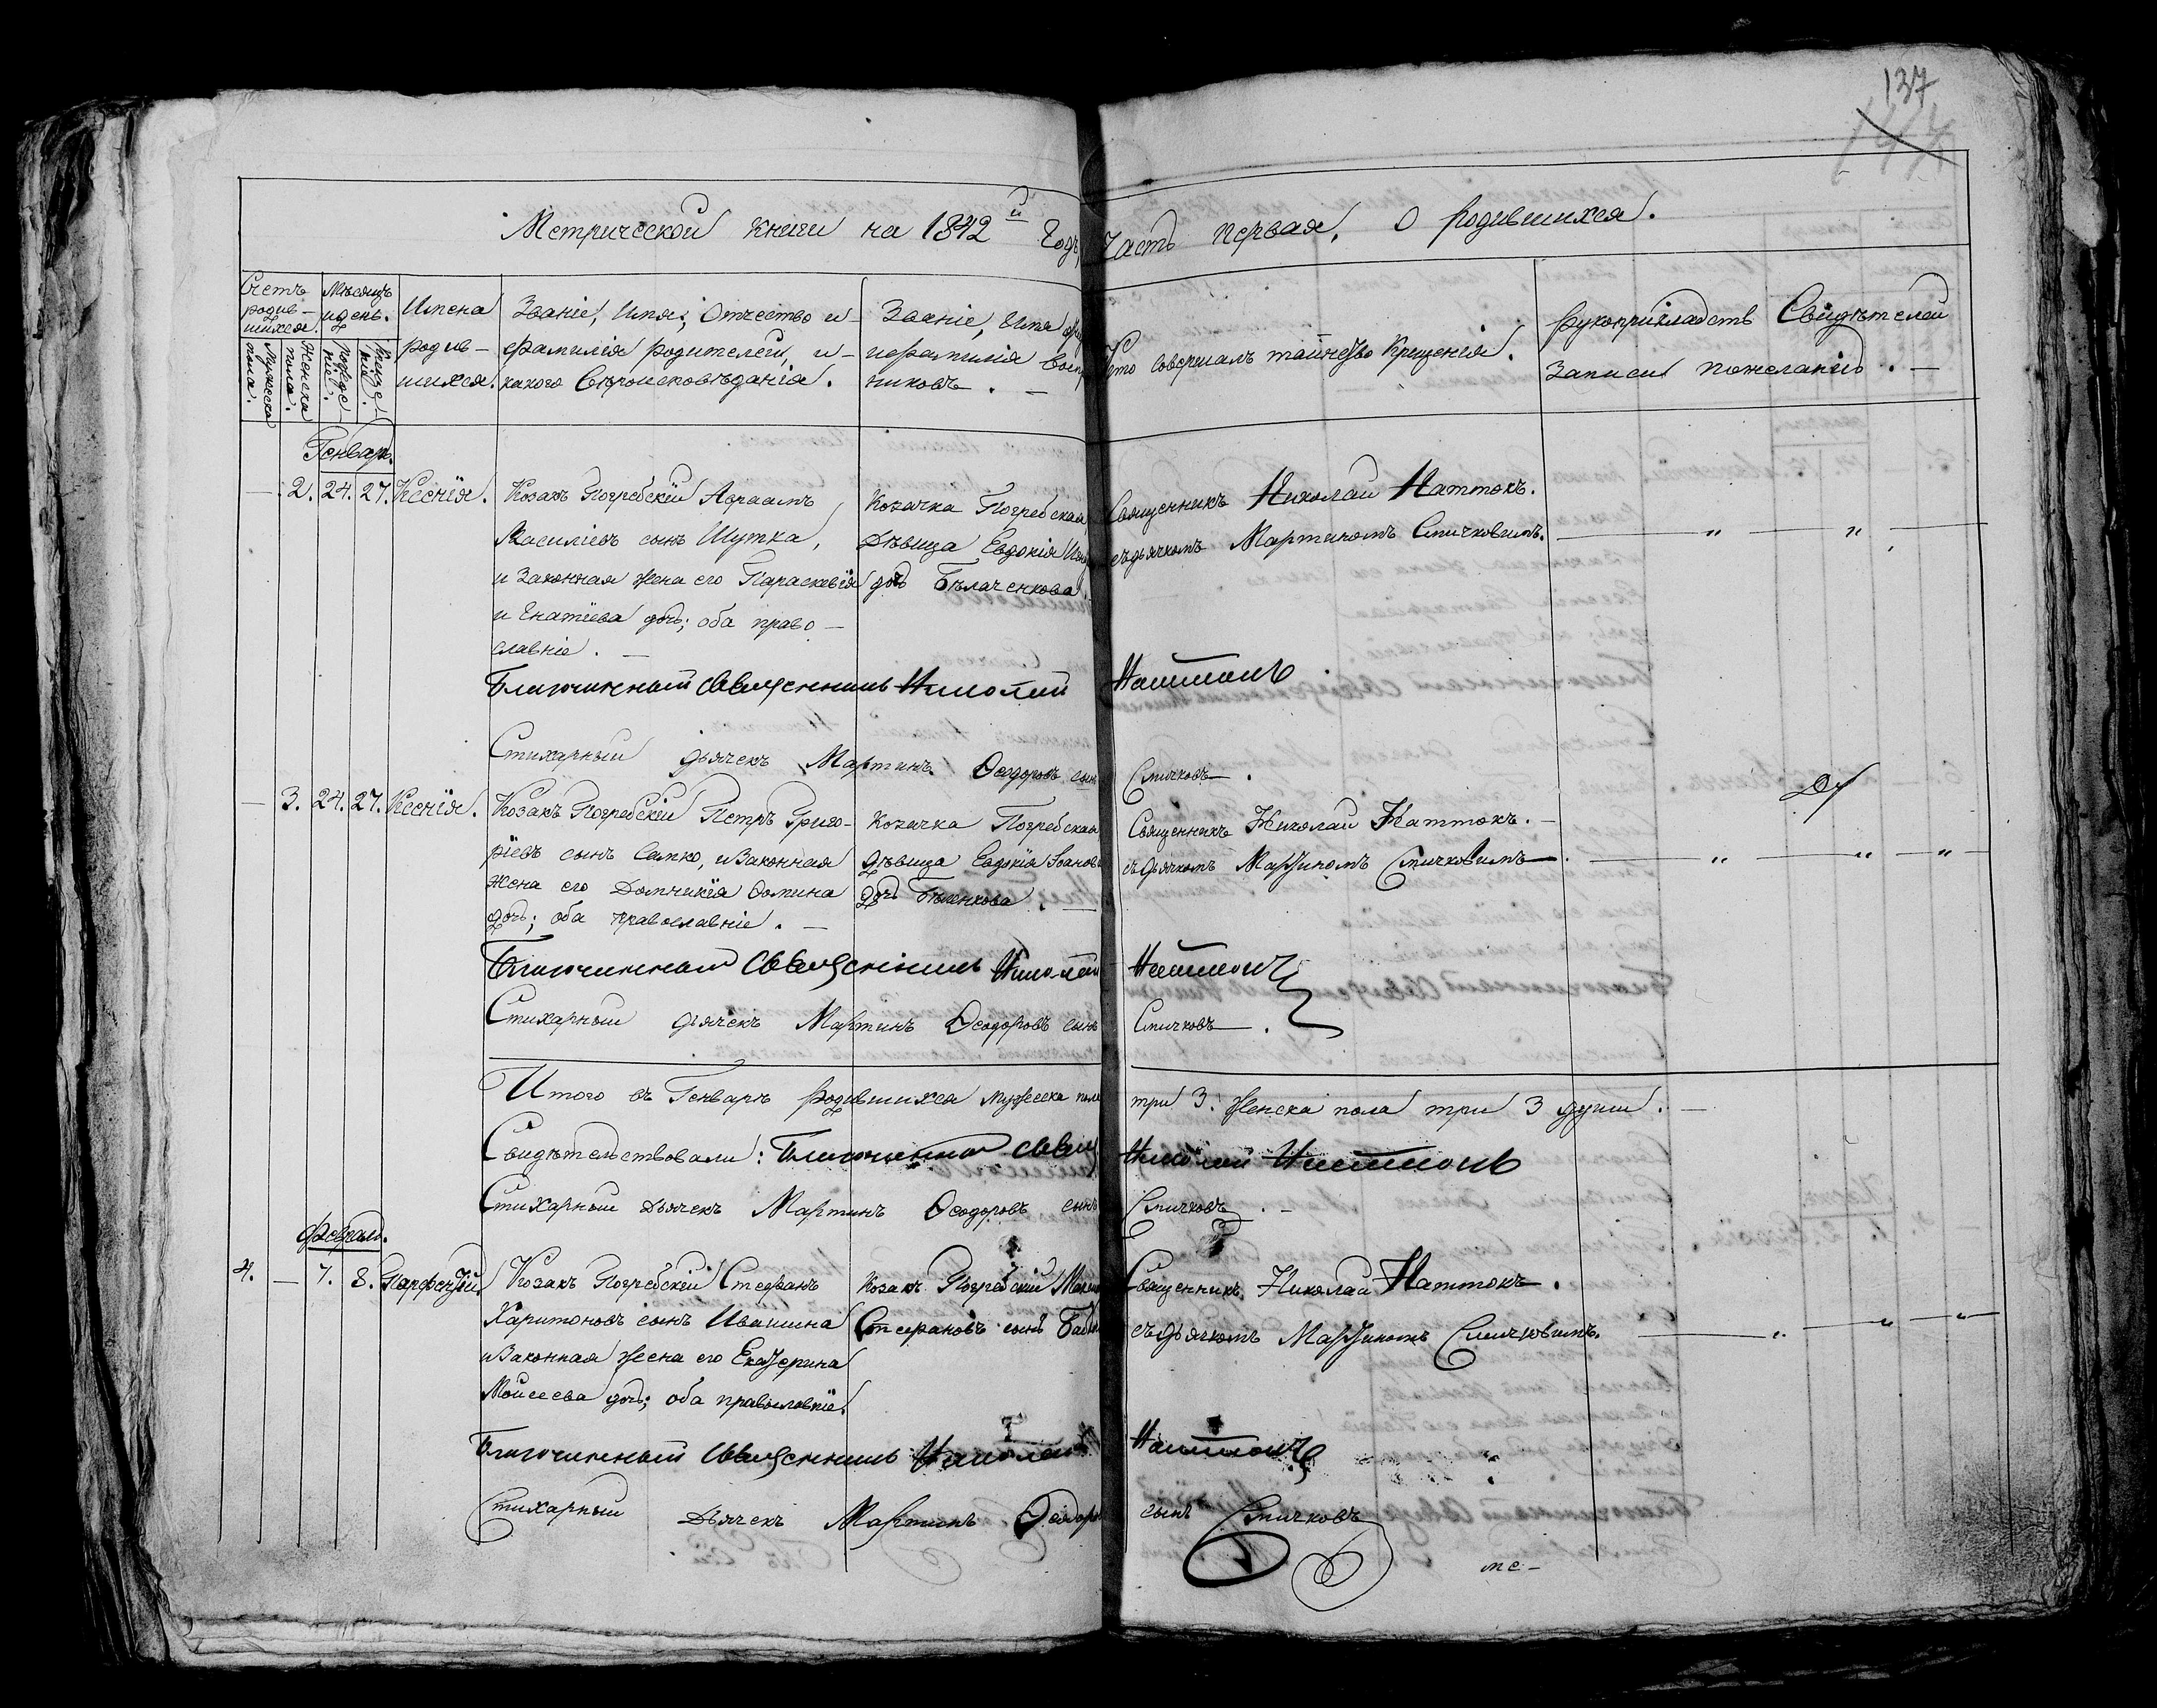 137
Метрической книги на 1842й Годъ, Часть первая, О родившихся.
Счетъ родив-шихся.
Мужеска пола.
Женска пола.
Мѣсяцъ и день.
Рожденіе.
Креще-нія.
Имена родив-шихся.
Званіе, Имя, Отчество и фамилія родителей, и какого Вѣроисповѣданія.
Званіе, Имя
и фамилія Восп
никовъ.
Кто совершалъ таинство Крещенія.
Рукоприкладств Свидѣтелей
Записи по желанію.
Генвар.
— 2. 24. 27. Ксенія.
Козакъ Погребскій Авраамъ
Василіевъ сынъ Шутка,
и Законная жена его Параскевія
Игнатіева дочь; оба право-
славніе.
Козачка Погребская
Дѣвица Евдокія
дочь Бѣлаченкова
Священникъ Николай Наттокъ.
съ дьячкомъ Мартиномъ Смичковимъ.
— „ — „ —
Благочинный Священникъ Николай Наттокъ
Стихарный дьячекъ Мартинъ Ѳеодоровъ сынъ Смичковъ.
— 3. 24. 27. Ксенія.
Козакъ Погребскій Петръ Григо-
ріевъ сынъ Сапко, и Законная
жена его Домникія Ѳомина
дочь; оба православніе.
Козачка Погребская
дѣвица Евдокія Іванова
дочь
Священникъ Николай Наттокъ.
съ дьячкомъ Мартиномъ Смичковимъ.
— „ — „ — „
Благочинный Священникъ Николай Наттокъ
Стихарный дьячекъ Мартинъ Ѳеодоровъ сынъ Смичковъ.
Итого въ Генварѣ родившихся мужеска пола три 3. Женска пола три 3 души.
Свидѣтельствовали: Благочинный Свящ Николай Наттокъ
Стихарный Дьячекъ Мартинъ Ѳеодоровъ сынъ Смичковъ.
Февраль.
4. — 7. 8. Парфентій
Козакъ Погребскій Стефанъ
Харитоновъ сынъ Ивашина
и Законная жена его Екатерина
Мойсеева дочь; оба православніе.
Козакъ Погребскій
Стефановъ сынъ
Священникъ Николай Наттокъ.
съ дьячкомъ Мартиномъ Смичковимъ.
— „ — „ — „
Благочинный Священникъ Николай Наттокъ
Стихарный Дьячекъ Мартинъ Ѳеодоров сынъ Смичковъ